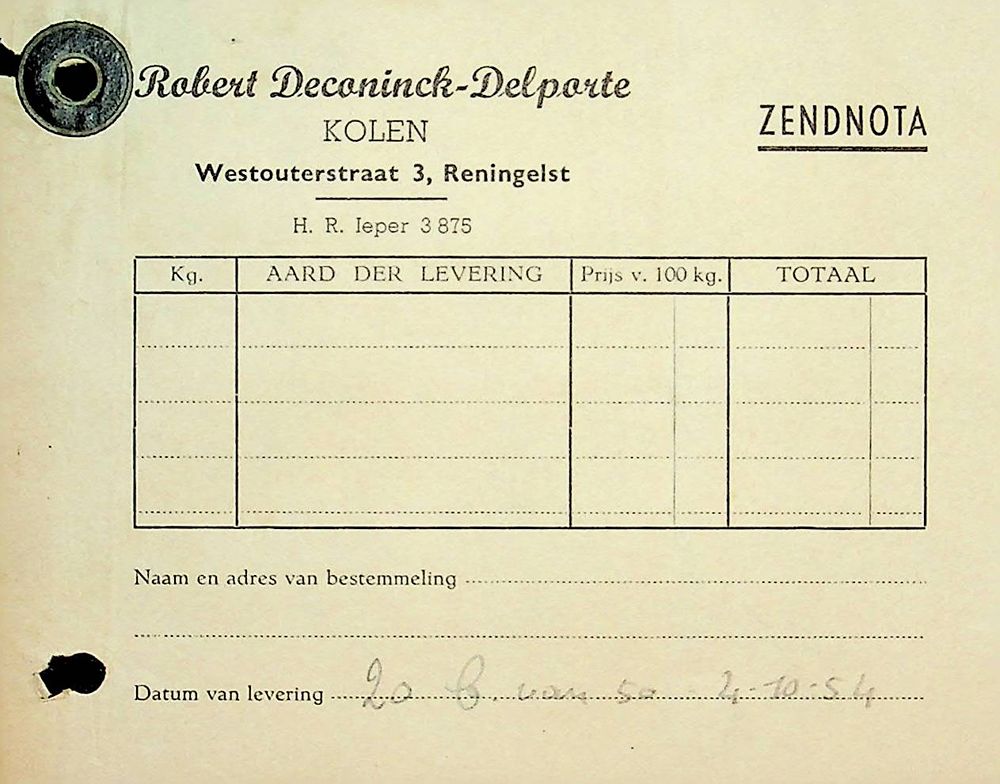 Robert Deconinck-Delporte
KOLEN
ZENDNOTA
Westouterstraat 3, Reningelst
H. R. Ieper 3875
Kg. AARD DER LEVERING Prijs v. 100 kg. TOTAAL
Naam en adres van bestemmeling
Datum van levering 20 b. van 50 4-10-54